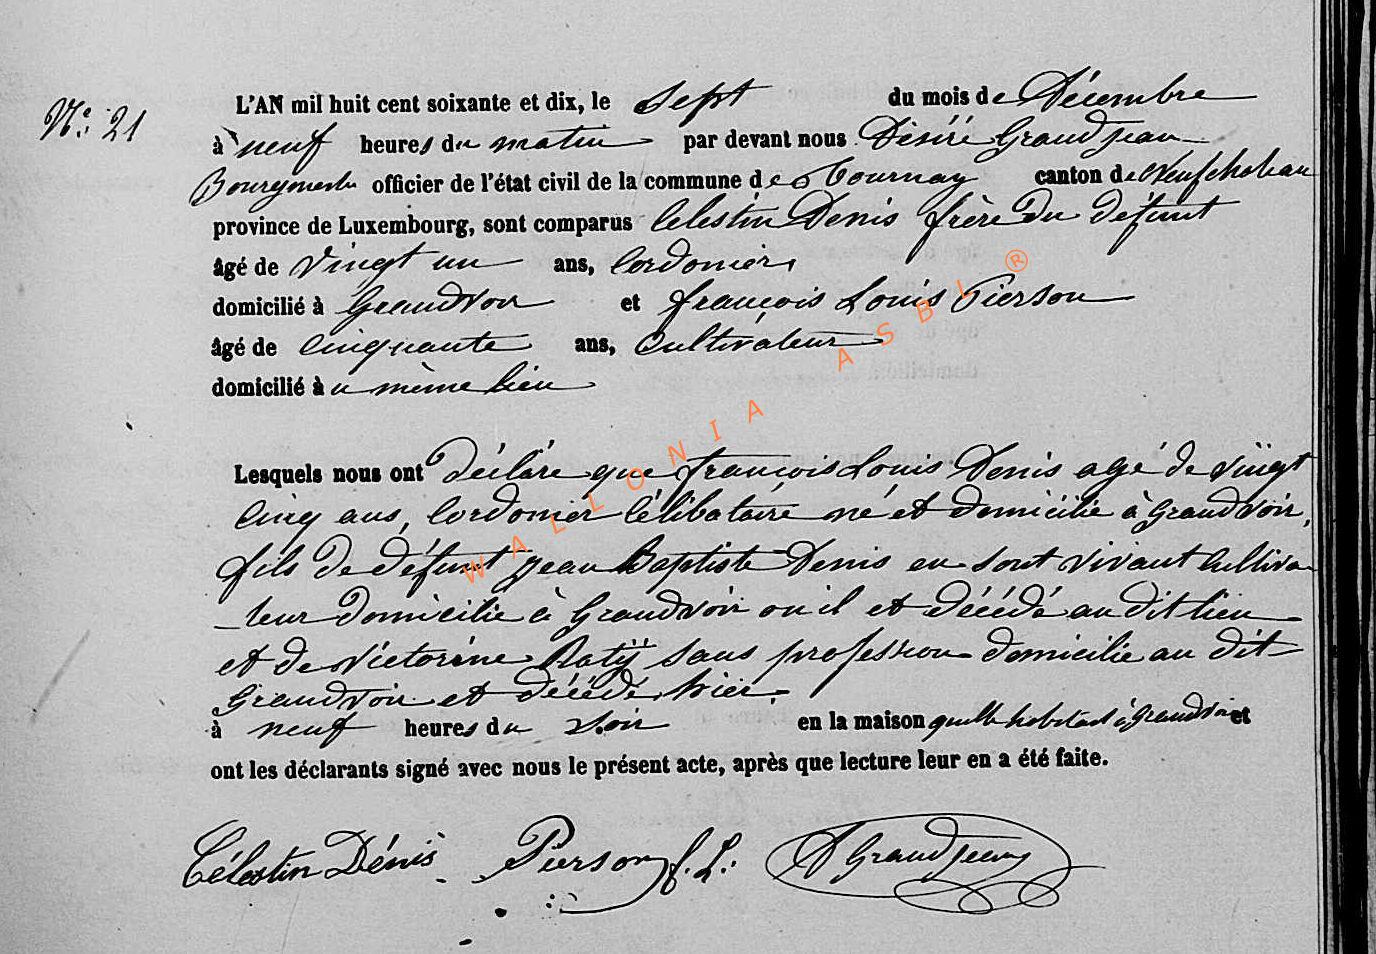 N° 21
L'AN mil huit cent soixante et dix, le sept du mois de Décembre
à neuf heures du matin par devant nous Désiré Grandjean
Bourgmestre officier de l'état civil de la commune de Tournay canton de Neufchateau
province de Luxembourg, sont comparus Celestin Denis frère du défunt
âgé de vingt un ans, Cordonier,
domicilié à Grandvoir et françois Louis Pierson
âgé de cinquante ans, Cultivateur
domicilié à u même lieu
Lesquels nous ont déclare que françois Louis Denis agé de vingt
cinq ans, Cordonier Célibataire né et domicilié à Grandvoir,
fils de défunt Jean Baptiste Denis en sont vivant cultiva
-teur domicilie à Grandvoir ou il et décédé au dit lieu
et de Victorine Raty sans profession domicilie au dit
Grandvoir et décédé hier.
à neuf heures du soir en la maison habitait à Grandvoir et
ont les déclarants signé avec nous le présent acte, après que lecture leur en a été faite.
Célestin Dénis Pierson f. L. D Grandjean
WALLONIA ASBL ®